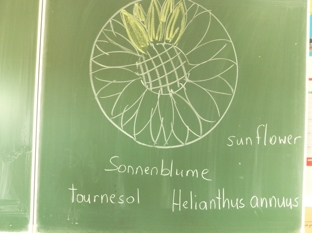 sunflower
Sonnenblume
tournesol Helianthus annuus